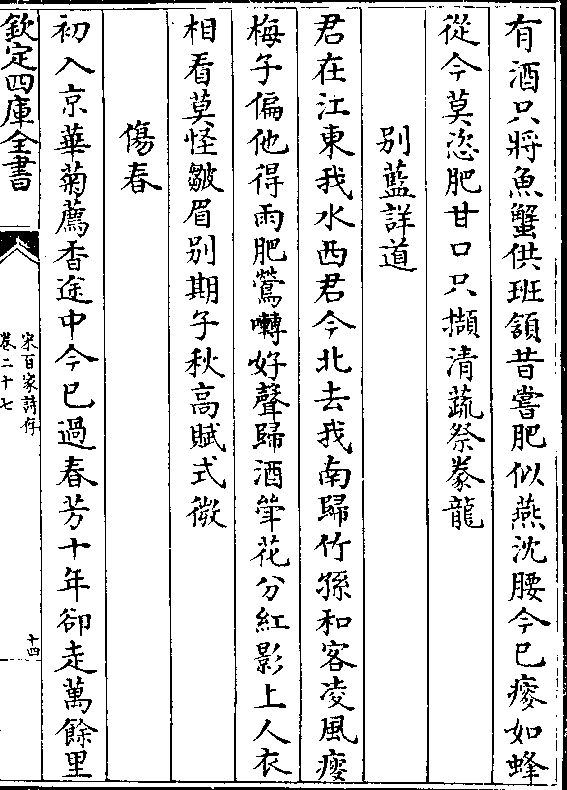 有酒只將魚蟹供班頷昔嘗肥似燕沈腰今已瘦如蜂
從今莫恣肥甘口只擷清蔬祭豢龍
别藍詳道
君在江東我水西君今北去我南歸竹孫和客凌風瘦
梅子偏他得雨肥鶯囀好聲歸酒斝花分紅影上人衣
相看莫怪皺眉别期子秋高賦式微
傷春
初入京華菊薦香途中今已過春芳十年卻走萬餘里
欽定四庫全書
宋百家詩存
卷二十七
十四